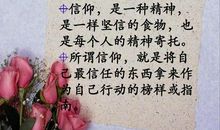 信仰，是一种精神，
是一样坚信的食物，也
是每个人的精神寄托。
所谓信仰，就是将自
己最信任的东西拿来作
为自己行动的榜样或指
南。